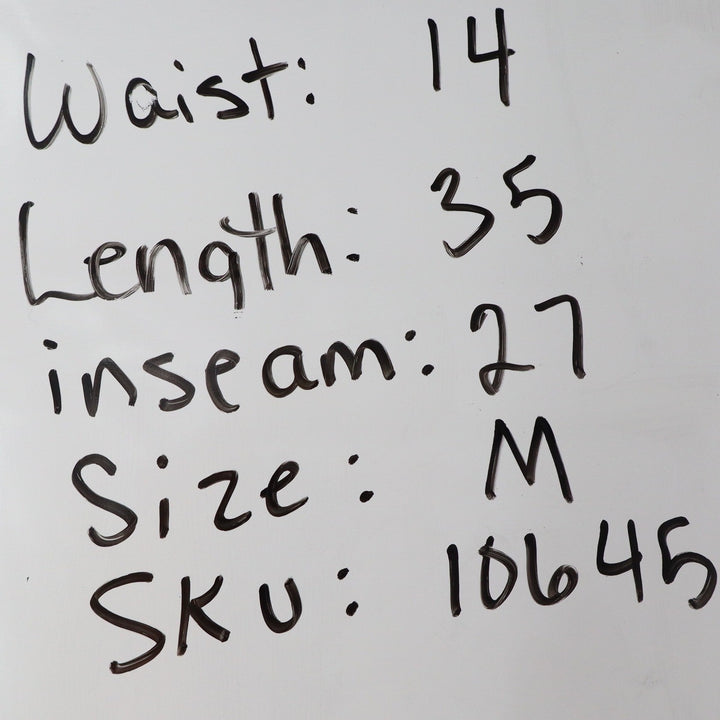 Waist: 14
Length: 35
inseam: 27
Size: M
SKU: 10645